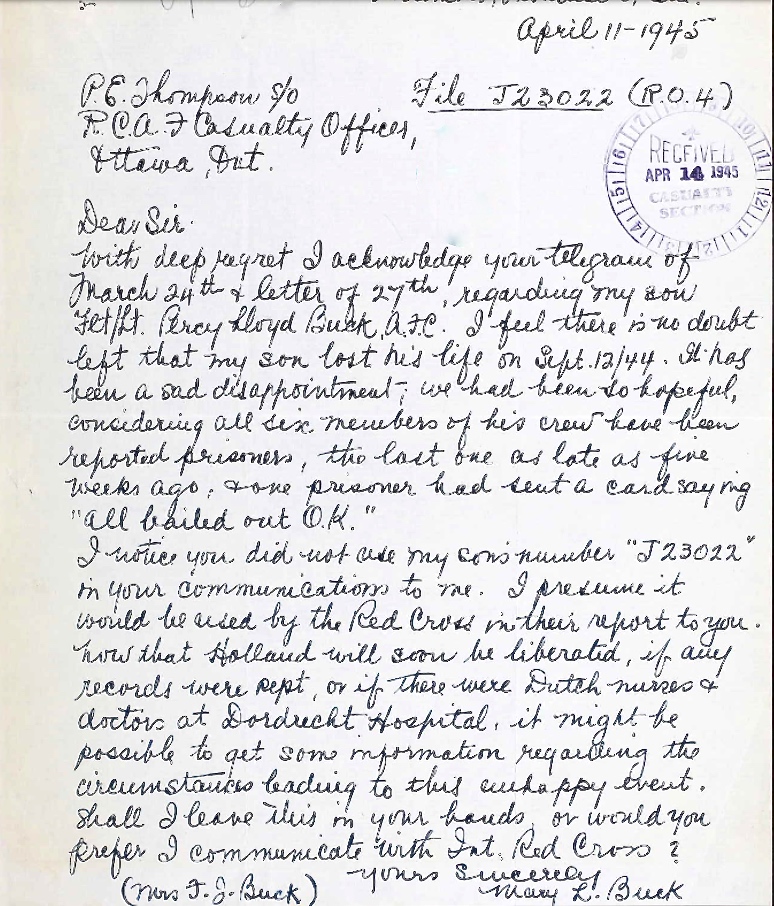 April 11-1945
P.E. Thompson S/O File J23022 (R.O.4.)
R.C.A.F Casualty Officer,
Ottawa, Ont.
RECEIVED
APR 14 1945
CASUALTY
SECTION
Dear Sir.
With deep regret I acknowledge your telegram of
March 24th & letter of 27th, regarding my son
Flt/Lt. Percy Lloyd Buck, A.F.C. I feel there is no doubt
left that my son lost his life on Sept. 12/44. It has
been a sad disappointment; we had been so hopeful,
considering all six members of his crew have been
reported prisoners, the last one as late as five
weeks ago, & one prisoner had sent a card saying
"All bailed out O.K."
I notice you did not use my son's number "J23022"
in your communications to me. I presume it
would be used by the Red Cross in their report to you.
Now that Holland will soon be liberated, if any
records were kept, or if there were Dutch nurses &
doctors at Dordrecht Hospital, it might be
possible to get some information regarding the
circumstances leading to this unhappy event.
Shall I leave this in your hands, or would you
prefer I communicate with Int. Red Cross?
Yours Sincerely
(Mrs F. J. Buck) Mary L. Buck